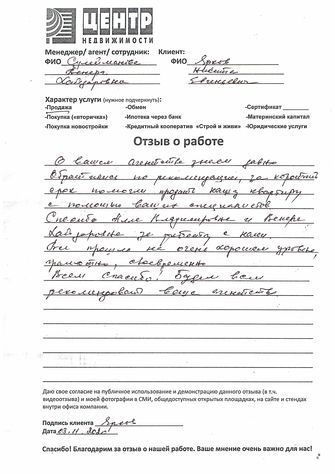 ЦЕНТР
НЕДВИЖИМОСТИ
Менеджер/ агент/ сотрудник: Клиент:
ФИО Сулейманова ФИО Ярков
Венера Никита
Хайдаровна Евгеньевич
Характер услуги (нужное подчеркнуть):
-Продажа -Обмен -Сертификат
-Покупка «вторичка» -Ипотека через банк -Материнский капитал
-Покупка новостройки -Кредитный кооператив «Строй и живи» -Юридические услуги
Отзыв о работе
О вашем агентстве знаем давно
Обратились по рекомендации, за короткий
срок помогли продать нашу квартиру
с помощью ваших специалистов
Спасибо Алле Владимировне и Венере
Хайдаровне за работу с нами.
Все прошло на очень хорошем уровне,
грамотно, своевременно
Всем спасибо! Будем всем
рекомендовать ваше агентство
Даю свое согласие на публичное использование и демонстрацию данного отзыва (в т.ч.
видеоотзыва) и моей фотографии в СМИ, общедоступных открытых площадках, на сайте и стендах
внутри офиса компании.
Подпись клиента
Дата 03.11
Спасибо! Благодарим за отзыв о нашей работе. Ваше мнение очень важно для нас!